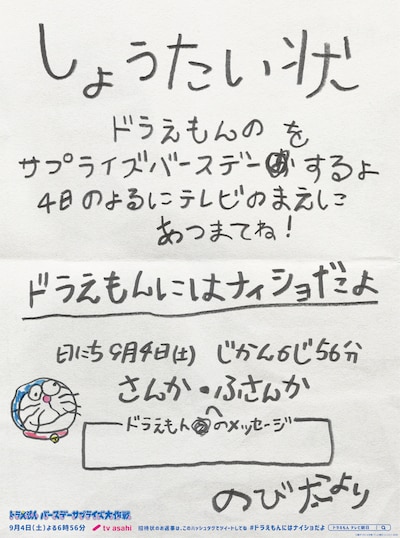 しょうたい状
ドラえもんの を
サプライズバースデー するよ
4日のよるにテレビのまえに
あつまてね!
ドラえもんにはナイショだよ
日にち 9月4日(土) じかん6じ56分
さんか・ふさんか
ドラえもん へのメッセージ
のび太より
ドラえもん バースデーサプライズ大作戦
9月4日(土)よる6時56分 tv asahi 招待状のお返事は、このハッシュタグでツイートしてね #ドラえもんにはナイショだよ ドラえもん テレビ朝日